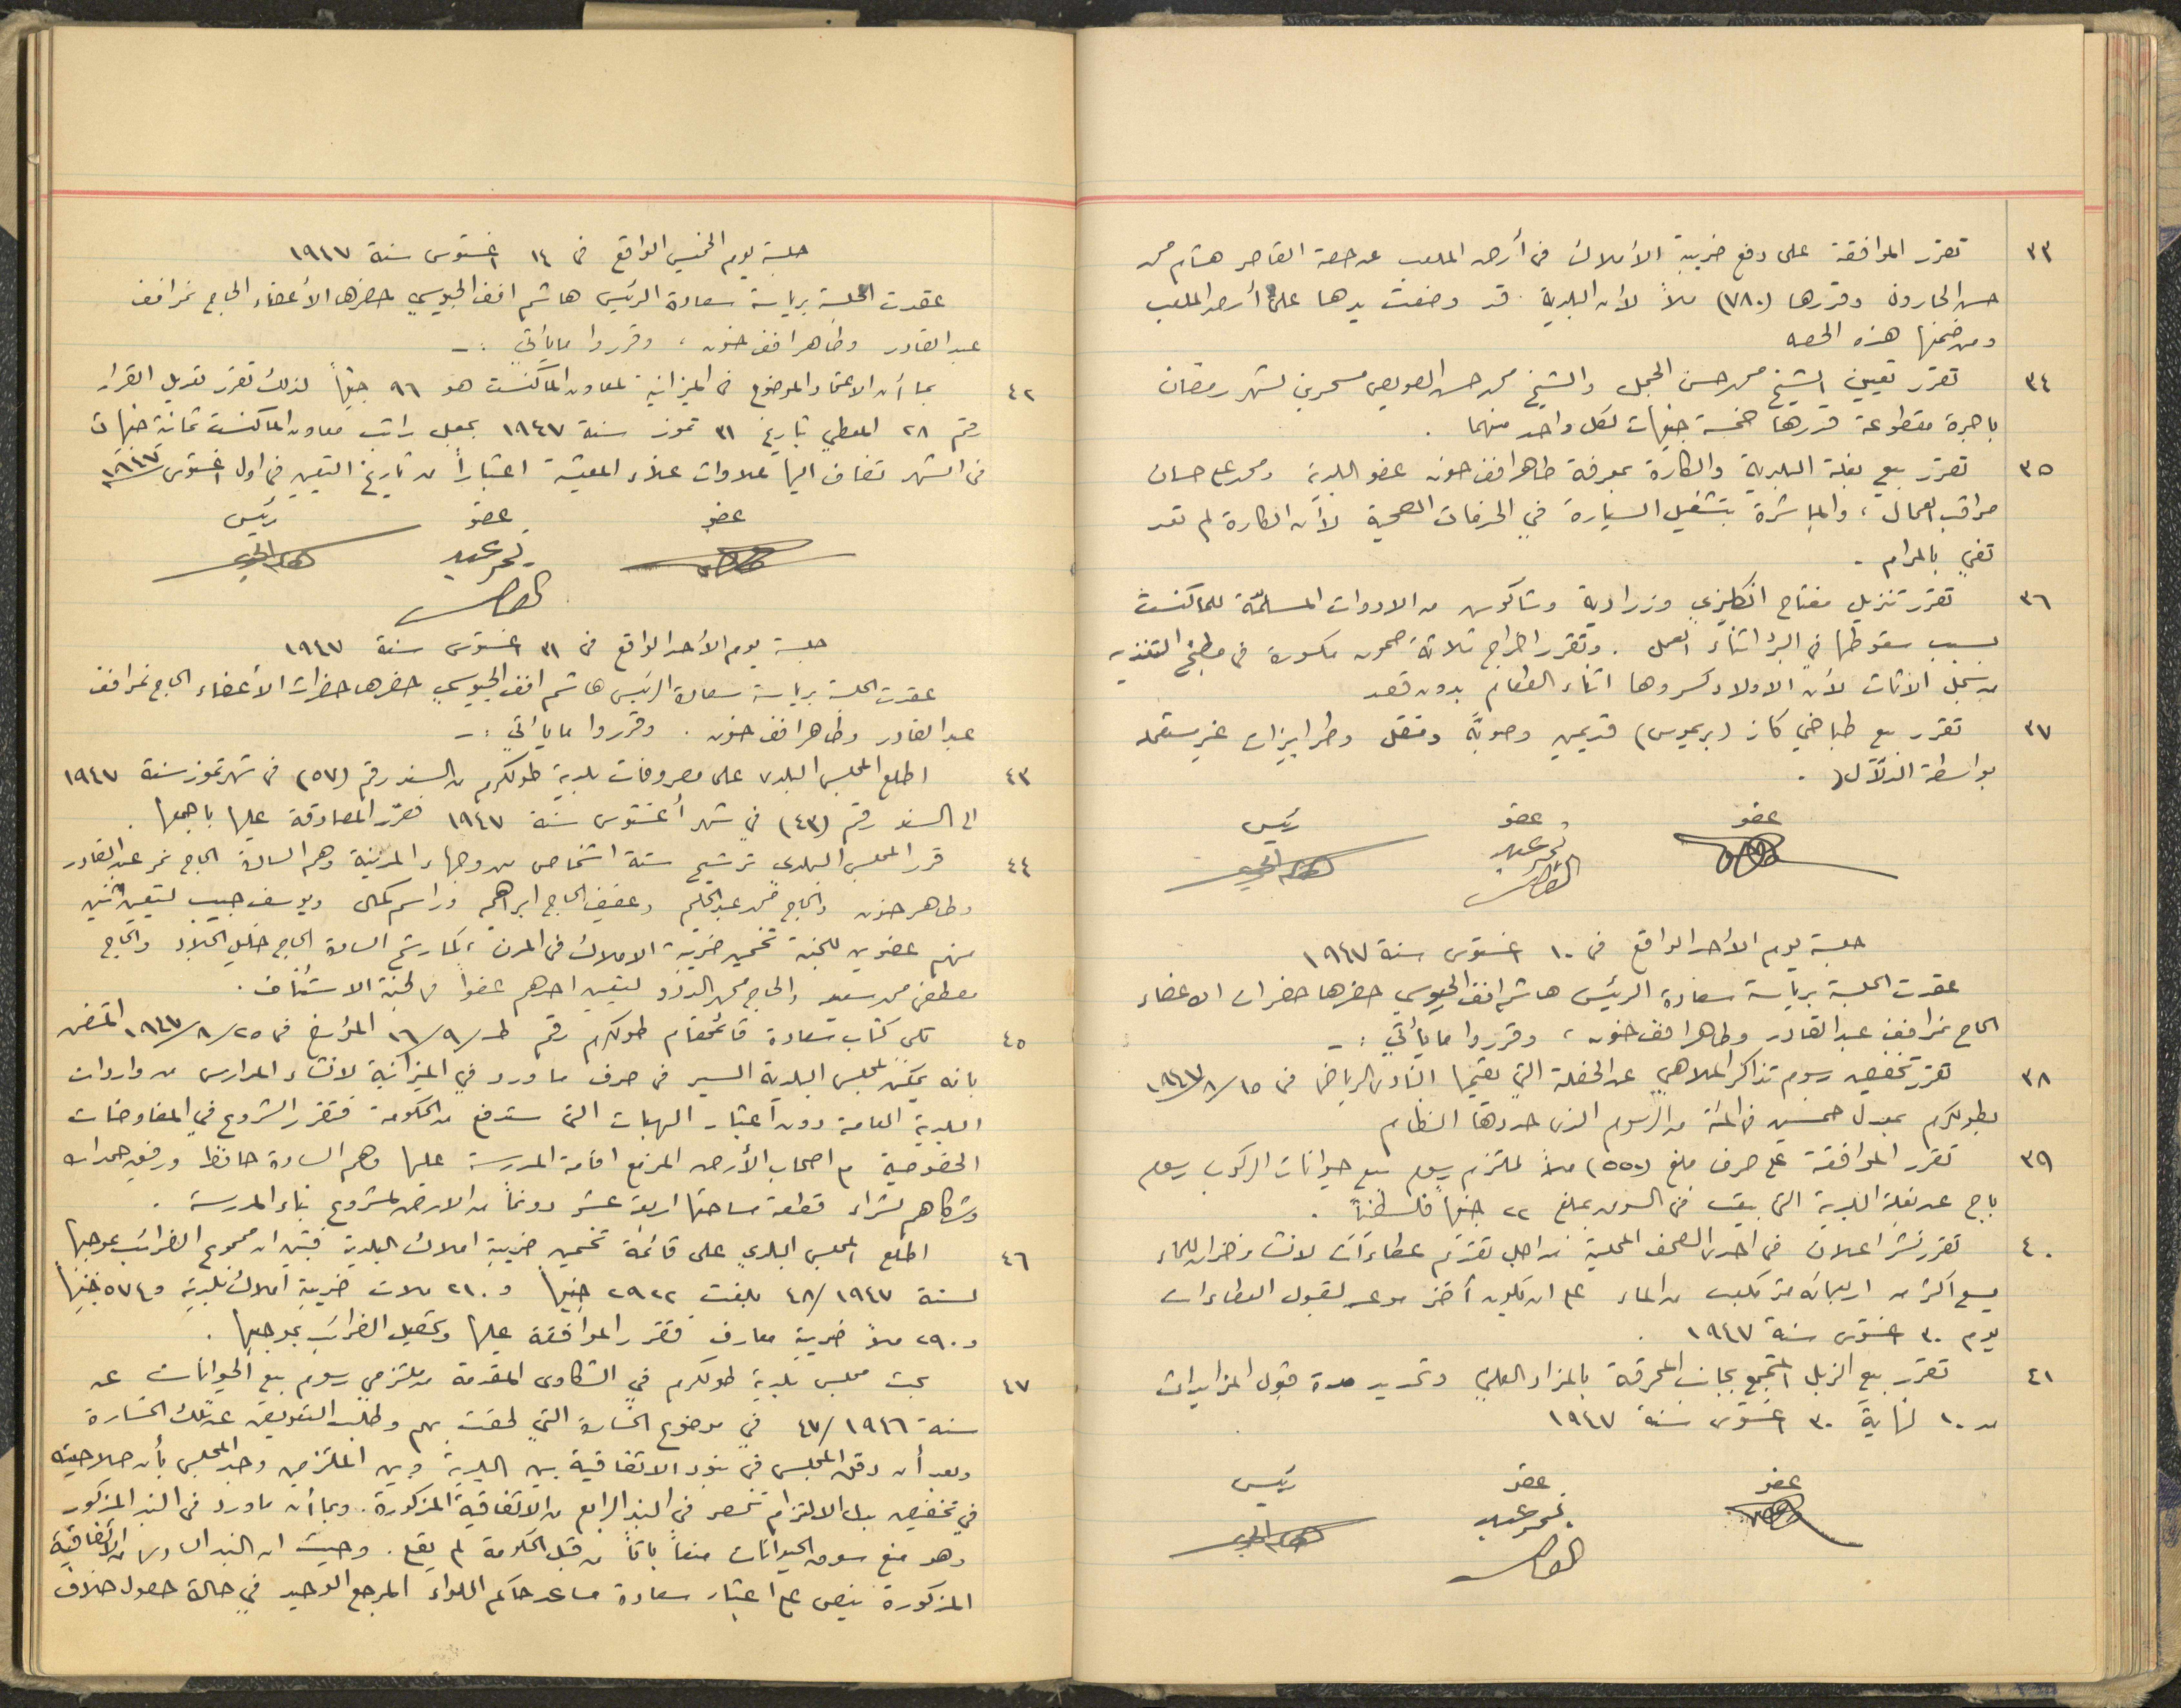 ٣٣ تقرر الموافقة على دفع ضريبة الأملاك في أرض الملعب عن حصة القاصر هشام محمد
حسن الحارون وقدرها (٧٨٠) ملاً لأن البلدية قد وضعت يدها على أرض الملعب
ومن ضمنها هذه الحصه
٣٤ تقرر تعيين الشيخ محمد حسن الجمل والشيخ محمد حسن الصويص مسحرين لشهر رمضان
باجرة مقطوعة قدرها خمسة جنيهات لكل واحد منهما .
٣٥ تقرر بيع بغلة البلدية والكارة بمعرفة طاهر افندي حنون عضو البلدية ومحمد علي حسان
مراقب العمال ، والمباشرة بتشغيل السيارة في الخدمات الصحية لأن الكارة لم تعد
تفي بالمرام .
٣٦ تقرر تنزيل مفتاح انكليزي وزرادية وشاكوش من الادوات المسلمة للماكنست
بسبب سقوطها في البئر اثناء العمل . وتقرر اخراج ثلاثة صحون مكسورة في مطبخ التغذيه
من سجل الاثاث لأن الاولاد كسروها اثناء الطعام بدون قصد
٣٧ تقرر بيع طباخي كاز (بريموس) قديمين وصوبة ومنقل وطرابيزات غير مستعمله
بواسطة الدلال .
عضو عضو رئيس
نمر عبد
القادر
جلسة يوم الأحد الواقع في ١٠ اغستوس سنة ١٩٤٧
عقدت الجلسة برياسة سعادة الرئيس هاشم افندي الجيوسي حضرها حضرات الاعضاء
الحاج نمر افندي عبد القادر وطاهر افندي حنون ، وقرروا ما يأتي :-
٣٨ تقرر تخفيض رسوم تذاكر الملاهي عن الحفلة التي يقيمها النادي الرياضي في ١٥/٨/١٩٤٧
بطولكرم بمعدل خمسين في المئة من الرسوم الذي حددها النظام
٣٩ تقرر الموافقة على صرف مبلغ (٥٥٠) ملاً لملتزم رسوم بيع حيوانات الركوب رسوم
باج عن بغلة البلدية التي بيعت في السوق بمبلغ ٢٢ جنيهاً فلسطينياً .
٤٠ تقرر نشر اعلان في احدى الصحف المحلية من اجل تقديم عطاءات لانشاء خزان للماء
يسع اكثر من اربمائه متر مكعب من الماء على ان يكون آخر موعد لقبول العطاءات
يوم ٣٠ اغستوس سنة ١٩٤٧ .
٤١ تقرر بيع الزبل المتجمع بجانب المحرقة بالمزاد العلني وتحديد مدة قبول المزايدات
من ١٠ لنهاية ٣٠ اغستوس سنة ١٩٤٧
عضو عضو رئيس
نمر عبد
القادر
جلسة يوم الخميس الواقع في ١٤ اغستوس سنة ١٩٤٧
عقدت الجلسة برياسة سعادة الرئيس هاشم افندي الجيوسي حضرها الأعضاء الحاج نمر افندي
عبد القادر وطاهر افندي حنون ، وقرروا ما يأتي :-
٤٢ بما أن الاعتماد الموضوع في الميزانية لمعاون الماكنست هو ٩٦ جنيهاً لذلك تقرر تعديل القرار
رقم ٢٨ المعطي بتاريخ ٣١ تموز سنة ١٩٤٧ بجعل راتب معاون الماكنست ثمانية جنيهات
في الشهر تضاف اليها علاوات غلاء المعيشة اعتباراً من تاريخ التعيين في اول اغستوس ١٩٤٧
عضو عضو رئيس
نمر عبد
القادر
جلسة يوم الأحد الواقع في ٣١ اغستوس سنة ١٩٤٧
عقدت الجلسة برياسة سعادة الرئيس هاشم افندي الجيوسي حضرها حضرات الأعضاء الحاج نمر افندي
عبد القادر وطاهر افندي حنون . وقرروا ما يأتي :-
٤٣ اطلع المجلس البلدى على مصروفات بلدية طولكرم من السند رقم (٥٧) في شهر تموز سنة ١٩٤٧
الى السند رقم (٤٣) في شهر أغستوس سنة ١٩٤٧ فقرر المصادقة عليها باجمعها .
٤٤ قرر المجلس البلدي ترشيح ستة اشخاص من وجهاء المدينة وهم السادة الحاج نمر عبد القادر
وطاهر حنون والحاج محمد عبد الحليم وعفيف الحاج ابراهيم وراسم كمال ويوسف حبيب لتعيين اثنين
منهم عضوين للجنة تخمين ضريبة الاملاك في المدن ، كما رشح السادة الحاج خليل الجلاد والحاج
مصطفى محمد سعيد والحاج محمد الددو لتعيين احدهم عضواً في لجنة الاستئناف .
٤٥ تلي كتاب سعادة قائمقام طولكرم رقم ط/٩/١٦ المؤرخ في ٢٥/٨/١٩٤٧ المتضمن
بانه يمكن لمجلس البلدية السير في صرف ما ورد في الميزانية لانشاء المدارس من واردات
البلدية العامة دون اعتبار الهبات التي ستدفع من الحكومة فتقرر الشروع في المفاوضات
الخصوصية مع اصحاب الأرض المزمع اقامة المدرسة عليها وهم السادة حافظ ورفيق حمدالله
وشركاهم لشراء قطعة مساحتها اربعة عشر دونماً من الارض لمشروع بناء المدرسة .
٤٦ اطلع المجلس البلدي على قائمة تخمين ضريبة املاك البلدية فتبين ان مجموع الضرائب بموجبها
لسنة ١٩٤٧/٤٨ بلغت ٢٩٢٢ جنيهاً و ٢١٠ ملات ضريبة املاك بلدية و ٥٧٤ جنيهاً
و ٢٩٠ ملاً ضريبة معارف فتقرر الموافقة عليها وتحصيل الضرائب بموجبها .
٤٧ بحث مجلس بلدية طولكرم في الشكاوى المقدمة من ملتزمي رسوم بيع الحيوانات عن
سنة ١٩٤٦/٤٧ في موضوع الخسارة التي لحقت بهم وطلب التعويض عن تلك الخسارة
وبعد أن دقق المجلس في بنود الاتفاقية بين البلدية وبين الملتزمين وجد المجلس بأن صلاحيته
في تخفيض بدل الالتزام تنحصر في البند الرابع من الاتفاقية المذكورة . وبما أن ما ورد في البند المذكور
وهو منع سوق الحيوانات منعاً باتاً من قبل الحكومة لم يقع . وحيث ان البند السادس من الاتفاقية
المذكورة ينص على اعتبار سعادة مساعد حاكم اللواء المرجع الوحيد في حالة حصول خلاف